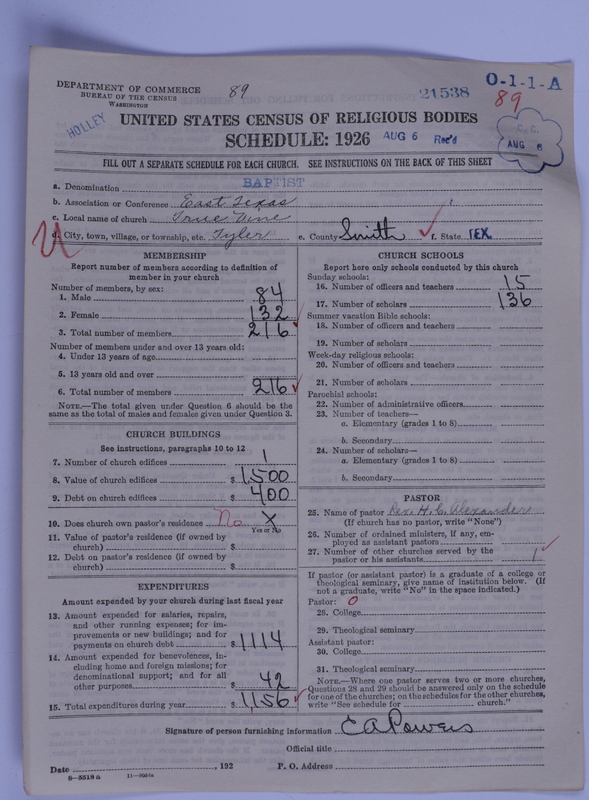 DEPARTMENT OF COMMERCE
BUREAU OF THE CENSUS
WASHINGTON
89
21538
O-1-1-A
89
HOLLEY
UNITED STATES CENSUS OF RELIGIOUS BODIES
SCHEDULE: 1926
AUG 6 Rec'd
C. C.
AUG 6
FILL OUT A SEPARATE SCHEDULE FOR EACH CHURCH. SEE INSTRUCTIONS ON THE BACK OF THIS SHEET
a. Denomination BAPTIST
b. Association or Conference East Texas
c. Local name of church True Vine
d. City, town, village, or township, etc. Tyler e. County Smith f. State TEX
U
MEMBERSHIP
Report number of members according to definition of
member in your church
Number of members, by sex:
1. Male 84
2. Female 132
3. Total number of members 216
Number of members under and over 13 years old:
4. Under 13 years of age
5. 13 years old and over
6. Total number of members 216
NOTE.—The total given under Question 6 should be the
same as the total of males and females given under Question 3.
CHURCH BUILDINGS
See instructions, paragraphs 10 to 12
7. Number of church edifices 1
8. Value of church edifices $ 1500
9. Debt on church edifices $ 400
10. Does church own pastor's residence No X
Yes or No
11. Value of pastor's residence (if owned by
church) $
12. Debt on pastor's residence (if owned by
church) $
EXPENDITURES
Amount expended by your church during last fiscal year
13. Amount expended for salaries, repairs,
and other running expenses; for im-
provements or new buildings; and for
payments on church debt $ 1114
14. Amount expended for benevolences, in-
cluding home and foreign missions; for
denominational support; and for all
other purposes $ 42
15. Total expenditures during year $ 1,156
CHURCH SCHOOLS
Report here only schools conducted by this church
Sunday schools:
16. Number of officers and teachers 15
17. Number of scholars 136
Summer vacation Bible schools:
18. Number of officers and teachers
19. Number of scholars
Week-day religious schools:
20. Number of officers and teachers
21. Number of scholars
Parochial schools:
22. Number of administrative officers
23. Number of teachers—
a. Elementary (grades 1 to 8)
b. Secondary
24. Number of scholars—
a. Elementary (grades 1 to 8)
b. Secondary
PASTOR
25. Name of pastor Rev. H. C. Alexander
(If church has no pastor, write "None")
26. Number of ordained ministers, if any, em-
ployed as assistant pastors
27. Number of other churches served by the
pastor or his assistants 1
If pastor (or assistant pastor) is a graduate of a college or
theological seminary, give name of institution below. (If
not a graduate, write "No" in the space indicated.)
Pastor: O
28. College
29. Theological seminary
Assistant pastor:
30. College
31. Theological seminary
NOTE.—Where one pastor serves two or more churches,
Questions 28 and 29 should be answered only on the schedule
for one of the churches; on the schedules for the other churches,
write "See schedule for church."
Signature of person furnishing information E A Powers
Official title
Date , 192 P. O. Address
8-5518a